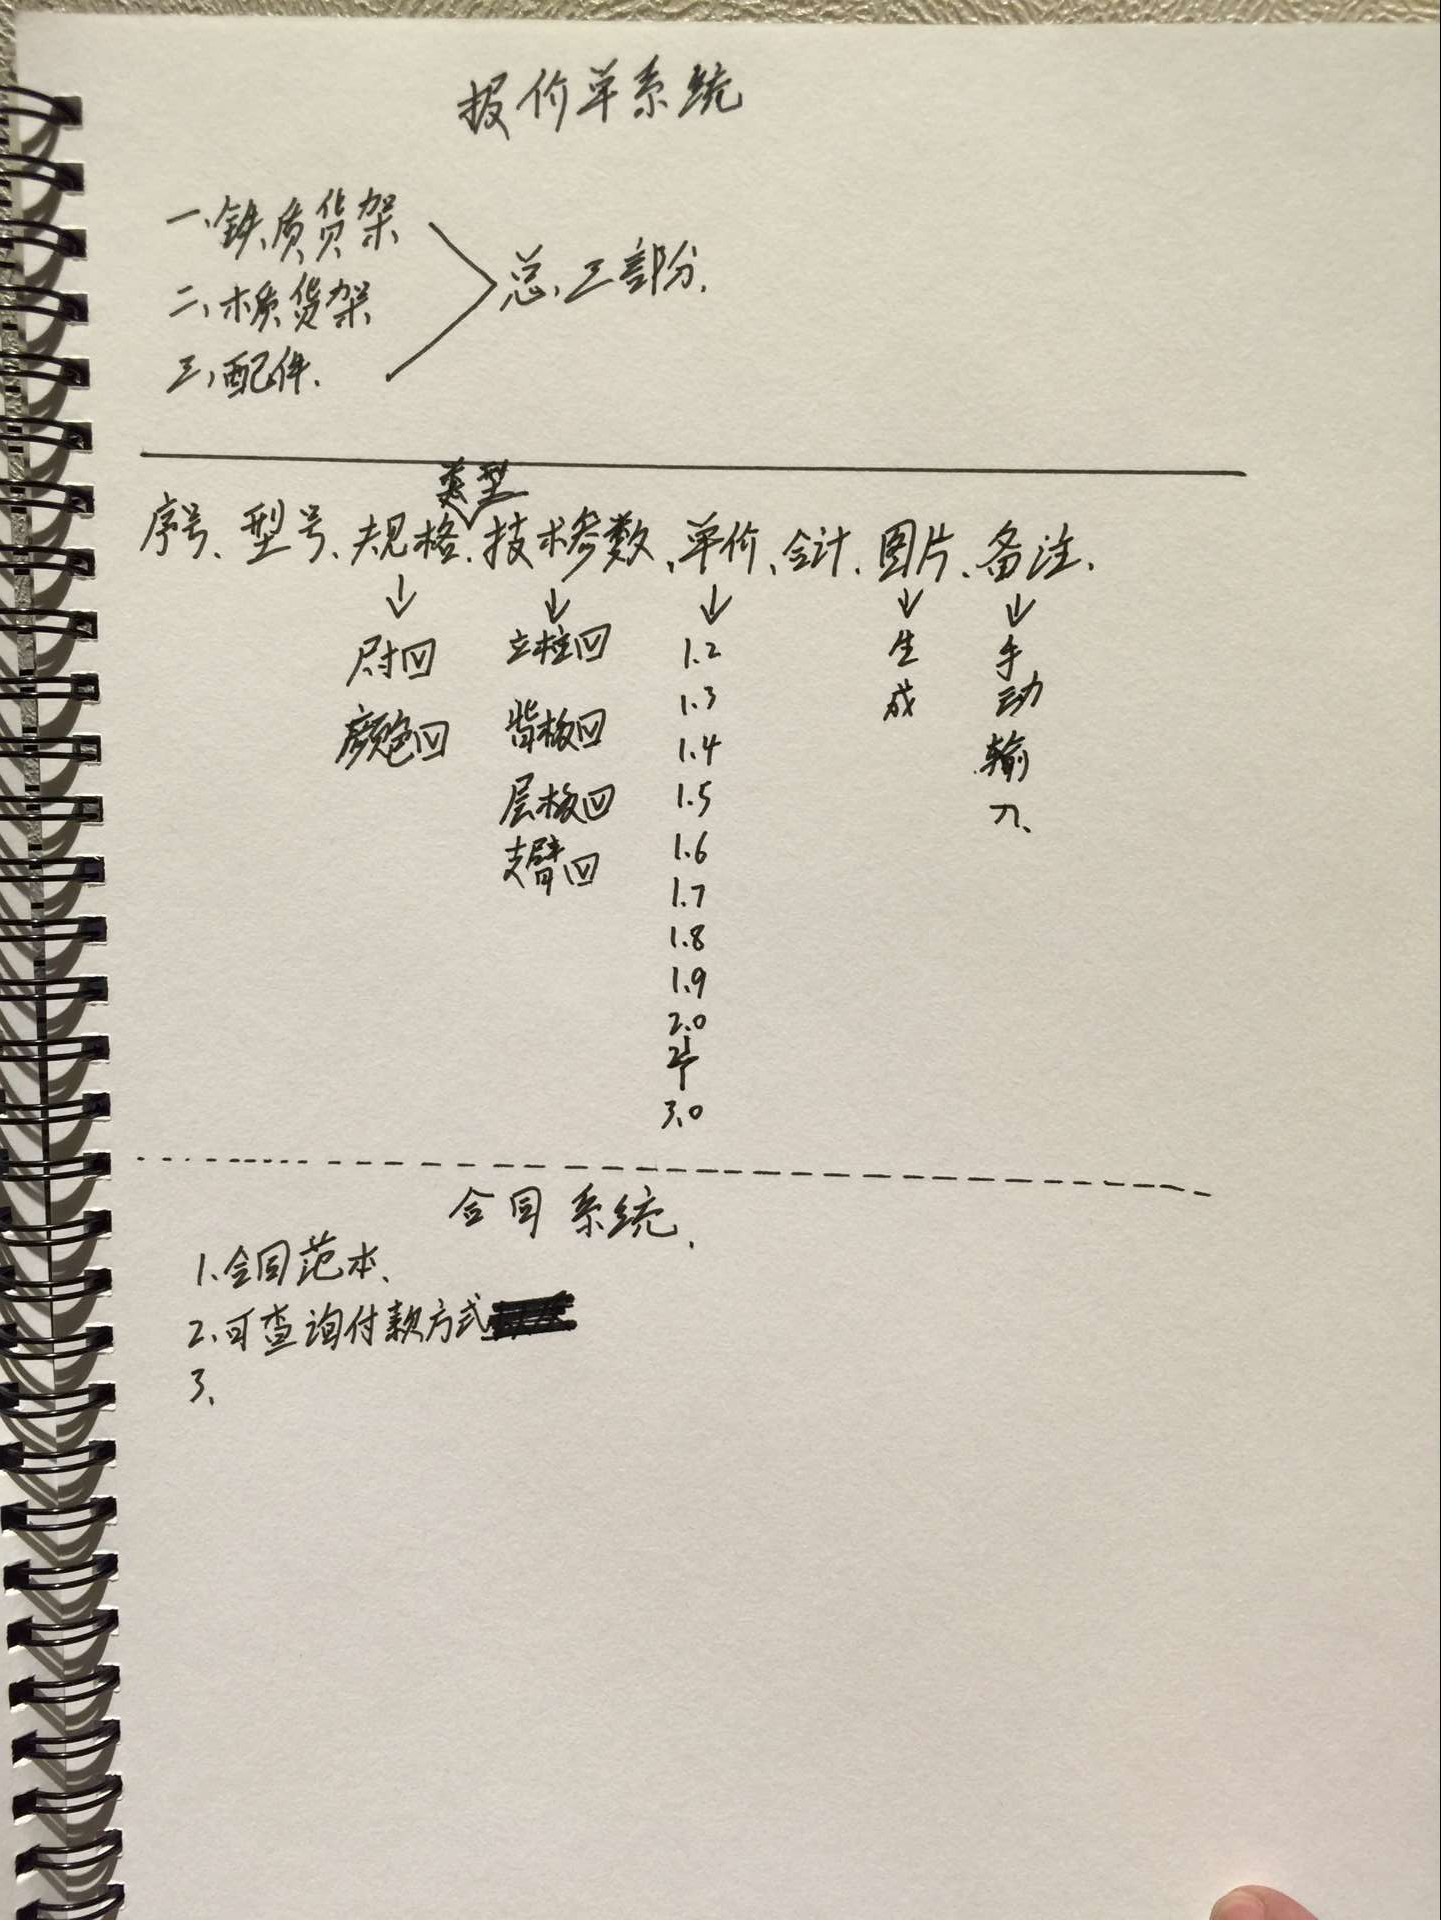 报价单系统
一、铁质货架
二、木质货架
三、配件.
总、三部分.
类型
序号、型号、规格、技术参数、单价、合计、图片、备注.
尺寸
颜色
立柱
背板
层板
支臂
1.2
1.3
1.4
1.5
1.6
1.7
1.8
1.9
2.0
3.0
生成
手动输入.
合同系统.
1.合同范本、
2.可查询付款方式
3、